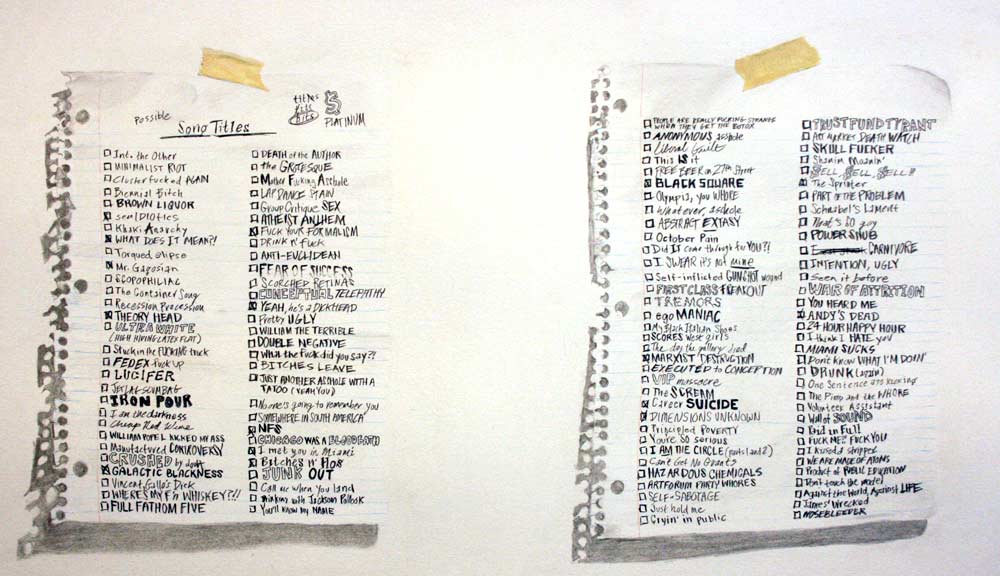 Possible
Song Titles
titles
kill
hits
5
PLATINUM
Int. the Other
MINIMALIST RIOT
Clusterfucked AGAIN
Biennial Bitch
BROWN LIQUOR
semIDIOTICS
Khaki Anarchy
WHAT DOES IT MEAN?!
Torqued elipse
Mr. Gagosian
SCOPOPHILIAC
The Container Song
Recession Procession
THEORY HEAD
ULTRA WHITE
(HIGH HIDING LATEX FLAT)
Stuck in the FUCKING truck
FEDEX fuck up
LUCIFER
JETLAG SCUMBAG
IRON POUR
I am the darkness
Cheap Red Wine
WILLIAM POPE L KICKED MY ASS
Manufactured CONTROVERSY
CRUSHED by doubt
GALACTIC BLACKNESS
Vincent Gallo's Dick
WHERE'S MY F'n WHISKEY?!!
FULL FATHOM FIVE
DEATH of the AUTHOR
the GROTESQUE
Mother Fucking Asshole
LAP DANCE STAIN
Group Critique SEX
ATHEIST ANTHEM
FUCK YOUR FORMALISM
DRINK n' fuck
ANTI-EUCLIDEAN
FEAR OF SUCCESS
SCORCHED RETINAS
CONCEPTUAL TELEPATHY
YEAH, he's a DICKHEAD
Pretty UGLY
WILLIAM THE TERRIBLE
DOUBLE NEGATIVE
What the fuck did you say?!
BITCHES LEAVE
JUST ANOTHER ASSHOLE WITH A
TATOO (YEAH YOU)
No one's going to remember you
SOMEWHERE IN SOUTH AMERICA
NFS
CHICAGO WAS A BLOODBATH
I met you in Miami
Bitches n' Hos
JUNK OUT
Call me when you land
Drinking with Jackson Pollock
You'll know my NAME
PEOPLE ARE REALLY FUCKING STRANGE
WHEN THEY GET THE BOTOX
ANONYMOUS asshole
Liberal Guilt
This IS it
FREE BEER on 27th Street
BLACK SQUARE
Olympia, you WHORE
Whatever, asshole
ABSTRACT EXTASY
October Pain
Did IT come through for YOU?!
I SWEAR it's not mine
Self-inflicted GUNSHOT wound
FIRST CLASS FREAKOUT
TREMORS
ego MANIAC
My Black Italian Shoes
SCORES West girls
The day the gallery died
MARXIST DESTRUCTION
EXECUTED to CONCEPTION
VIP massacre
The SCREAM
Career SUICIDE
DIMENSIONS UNKNOWN
Principled POVERTY
You're so serious
I AM THE CIRCLE (parts 1 and 2)
Can't Get No Grants
HAZARDOUS CHEMICALS
ARTFORUM PARTY WHORES
SELF-SABOTAGE
Just hold me
Cryin' in public
TRUST FUND TYRANT
ART MARKET DEATH WATCH
SKULL FUCKER
Shamin Moanin'
SELL, SELL, SELL!!
The Sprinter
PART OF THE PROBLEM
Schnabel's Lament
That's so gay
POWER SNUB
CARNIVORE
INTENTION, UGLY
Seen it before
WAR OF ATTRITION
YOU HEARD ME
ANDY'S DEAD
24 HOUR HAPPY HOUR
I think I HATE you
MIAMI SUCKS
Don't know WHAT I'M DOIN'
DRUNK (again)
One Sentence ass kicking
The Pimp and the WHORE
Volunteer Assistant
Wall of SOUND
Paid in Full
FUCK ME? FUCK YOU
I kissed a stripper
WE ARE MADE OF ATOMS
Product of PUBLIC EDUCATION
Don't touch the model
Against the World, Against LIFE
James' Wrecked
NOSEBLEEDER